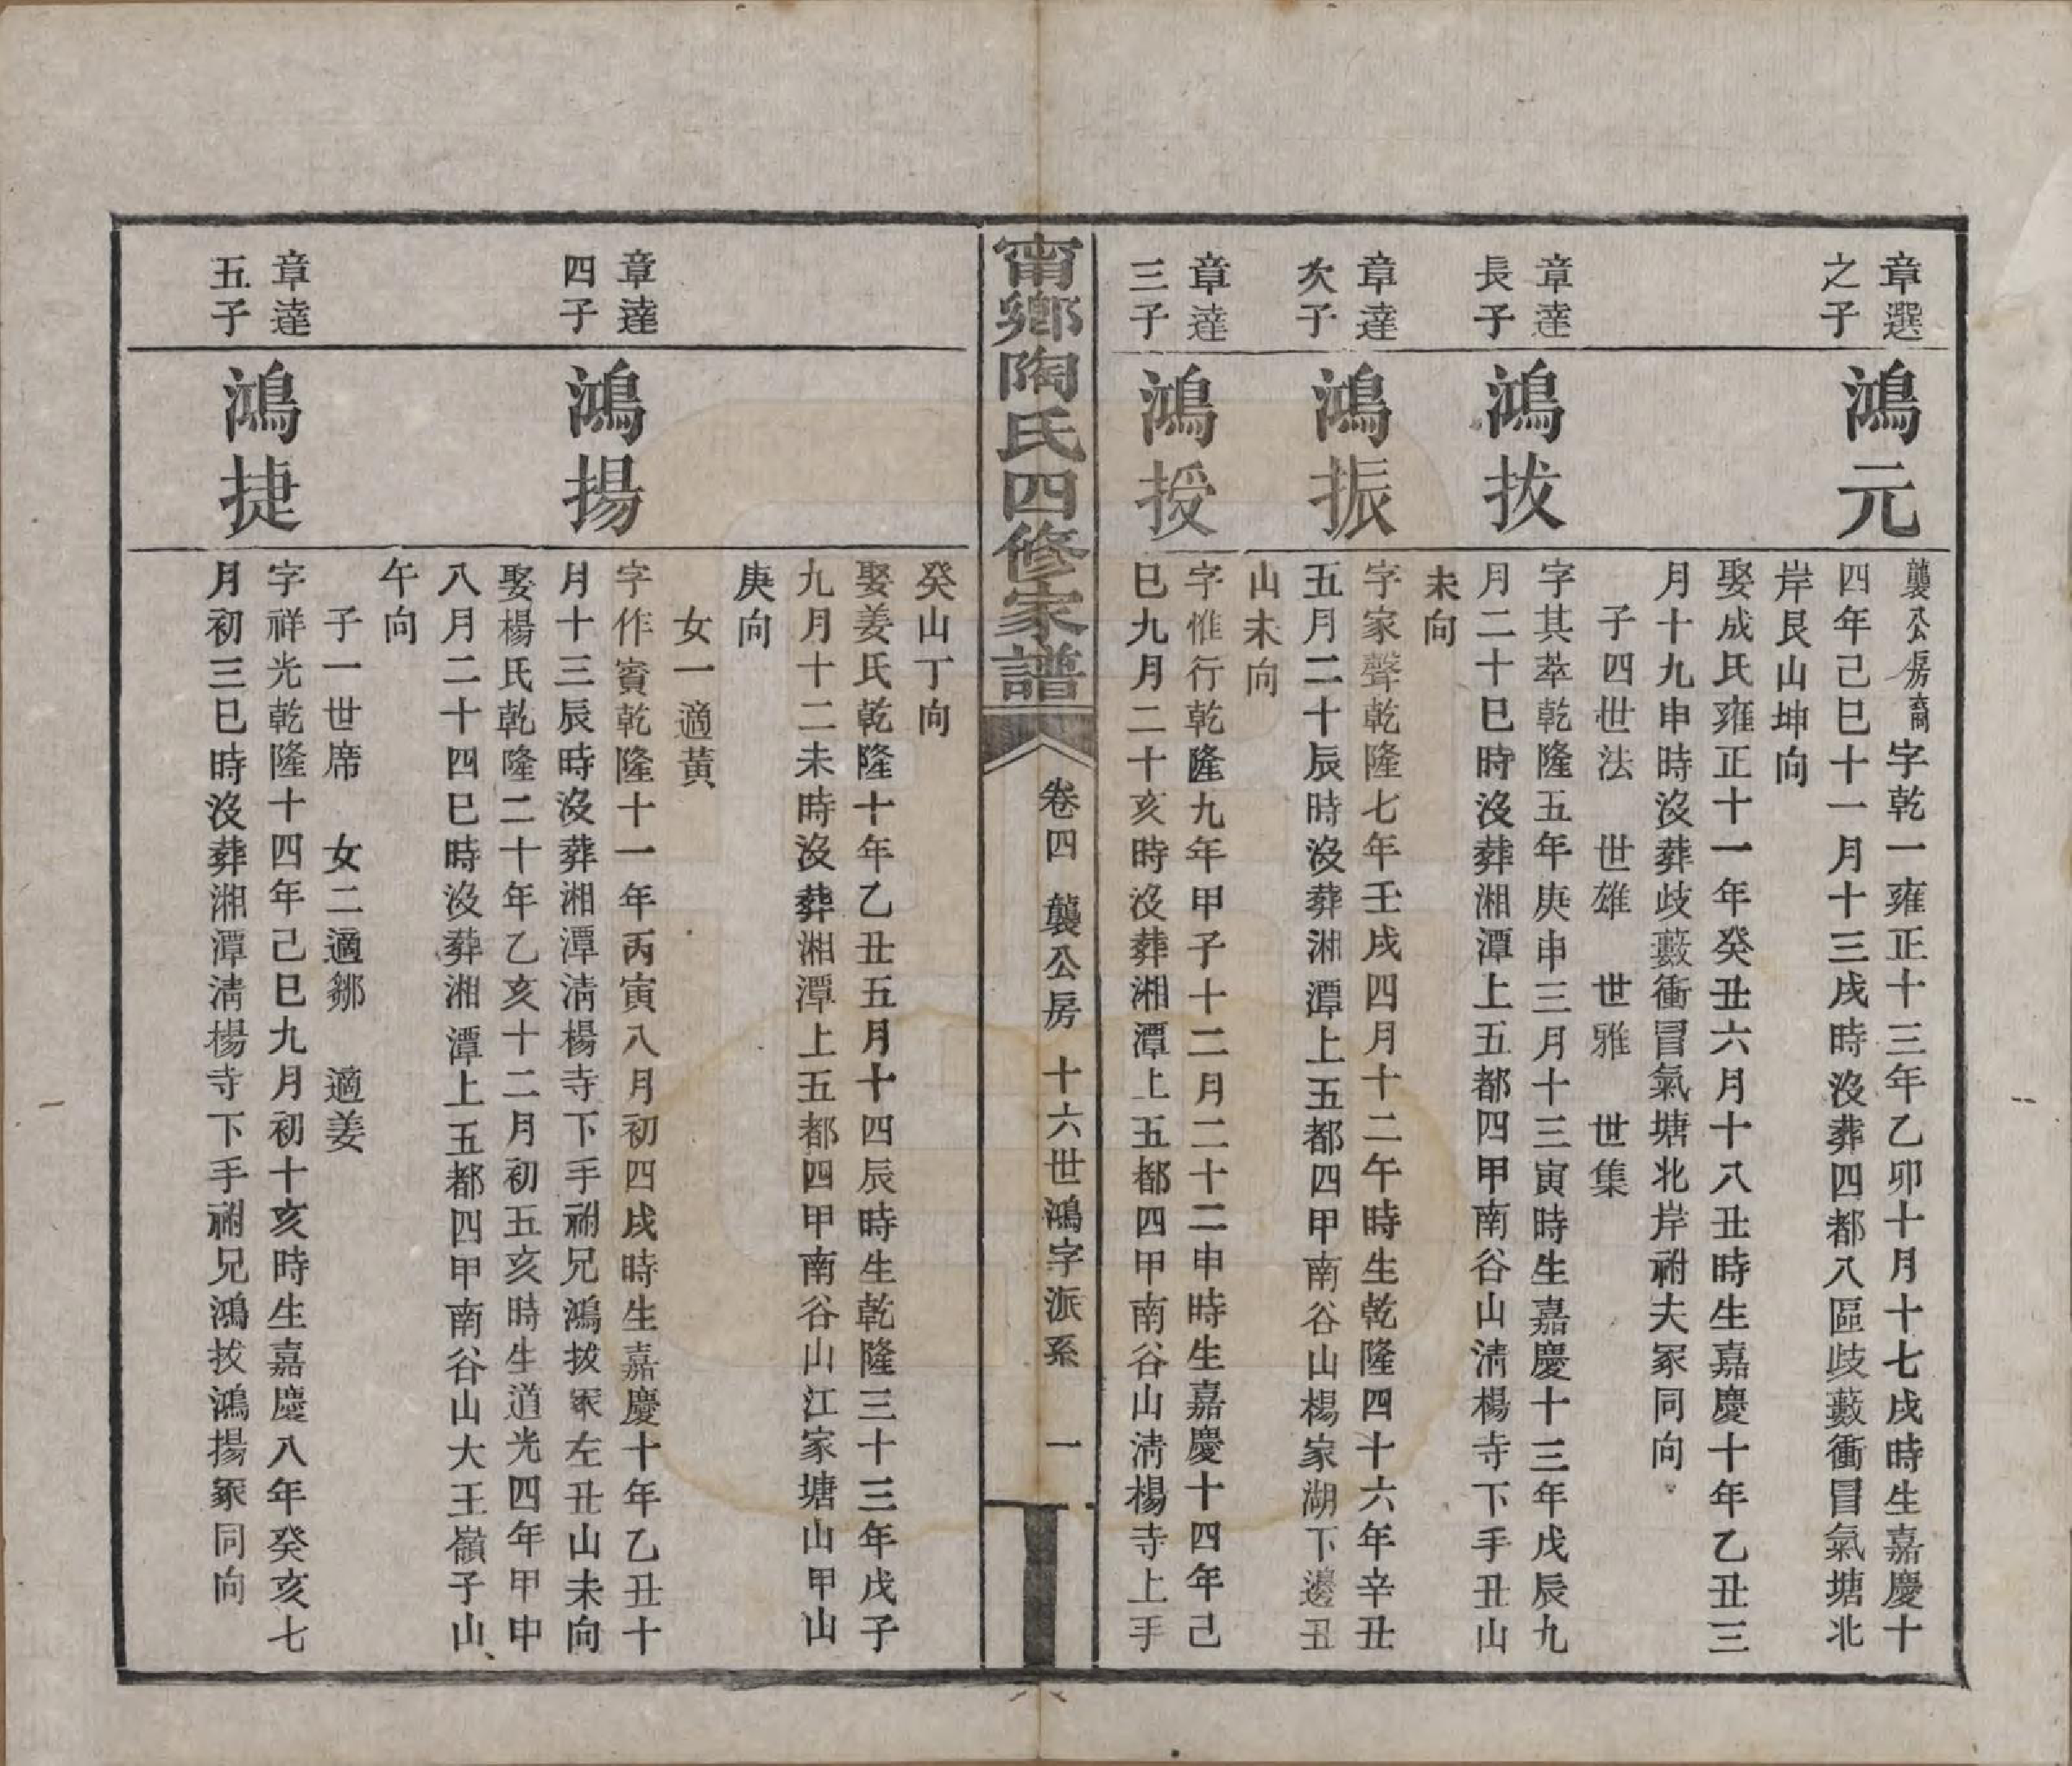 章選
之子
鴻元
龔公房裔字乾一雍正十三年乙卯十月十七戌時生嘉慶十
四年己巳十一月十三戌時沒葬四都八區歧藪衝冒氣塘北
岸艮山坤向
娶成氏雍正十一年癸丑六月十八丑時生嘉慶十年乙丑三
月十九申時沒葬歧藪衝冒氣塘北岸祔夫冢同向
子四世法 世雄 世雅 世集
章達
長子
鴻拔
字其萃乾隆五年庚申三月十三寅時生嘉慶十三年戊辰九
月二十巳時沒葬湘潭上五都四甲南谷山清楊寺下手丑山
未向
章達
次子
鴻振
字家聲乾隆七年壬戌四月十二午時生乾隆四十六年辛丑
五月二十辰時沒葬湘潭上五都四甲南谷山楊家湖下邊丑
山未向
章達
三子
鴻授
字惟行乾隆九年甲子十二月二十二申時生嘉慶十四年己
巳九月二十亥時沒葬湘潭上五都四甲南谷山清楊寺上手
甯鄉陶氏四修家譜
卷四 龔公房 十六世鴻字派系 一
癸山丁向
娶姜氏乾隆十年乙丑五月十四辰時生乾隆三十三年戊子
九月十二未時沒葬湘潭上五都四甲南谷山江家塘山甲山
庚向
女一適黃
章達
四子
鴻揚
字作賓乾隆十一年丙寅八月初四戌時生嘉慶十年乙丑十
月十三辰時沒葬湘潭清楊寺下手祔兄鴻拔冢左丑山未向
娶楊氏乾隆二十年乙亥十二月初五亥時生道光四年甲申
八月二十四巳時沒葬湘潭上五都四甲南谷山大王嶺子山
午向
子一世席 女二適鄒 適姜
章達
五子
鴻捷
字祥光乾隆十四年己巳九月初十亥時生嘉慶八年癸亥七
月初三巳時沒葬湘潭清楊寺下手祔兄鴻拔鴻揚冢同向